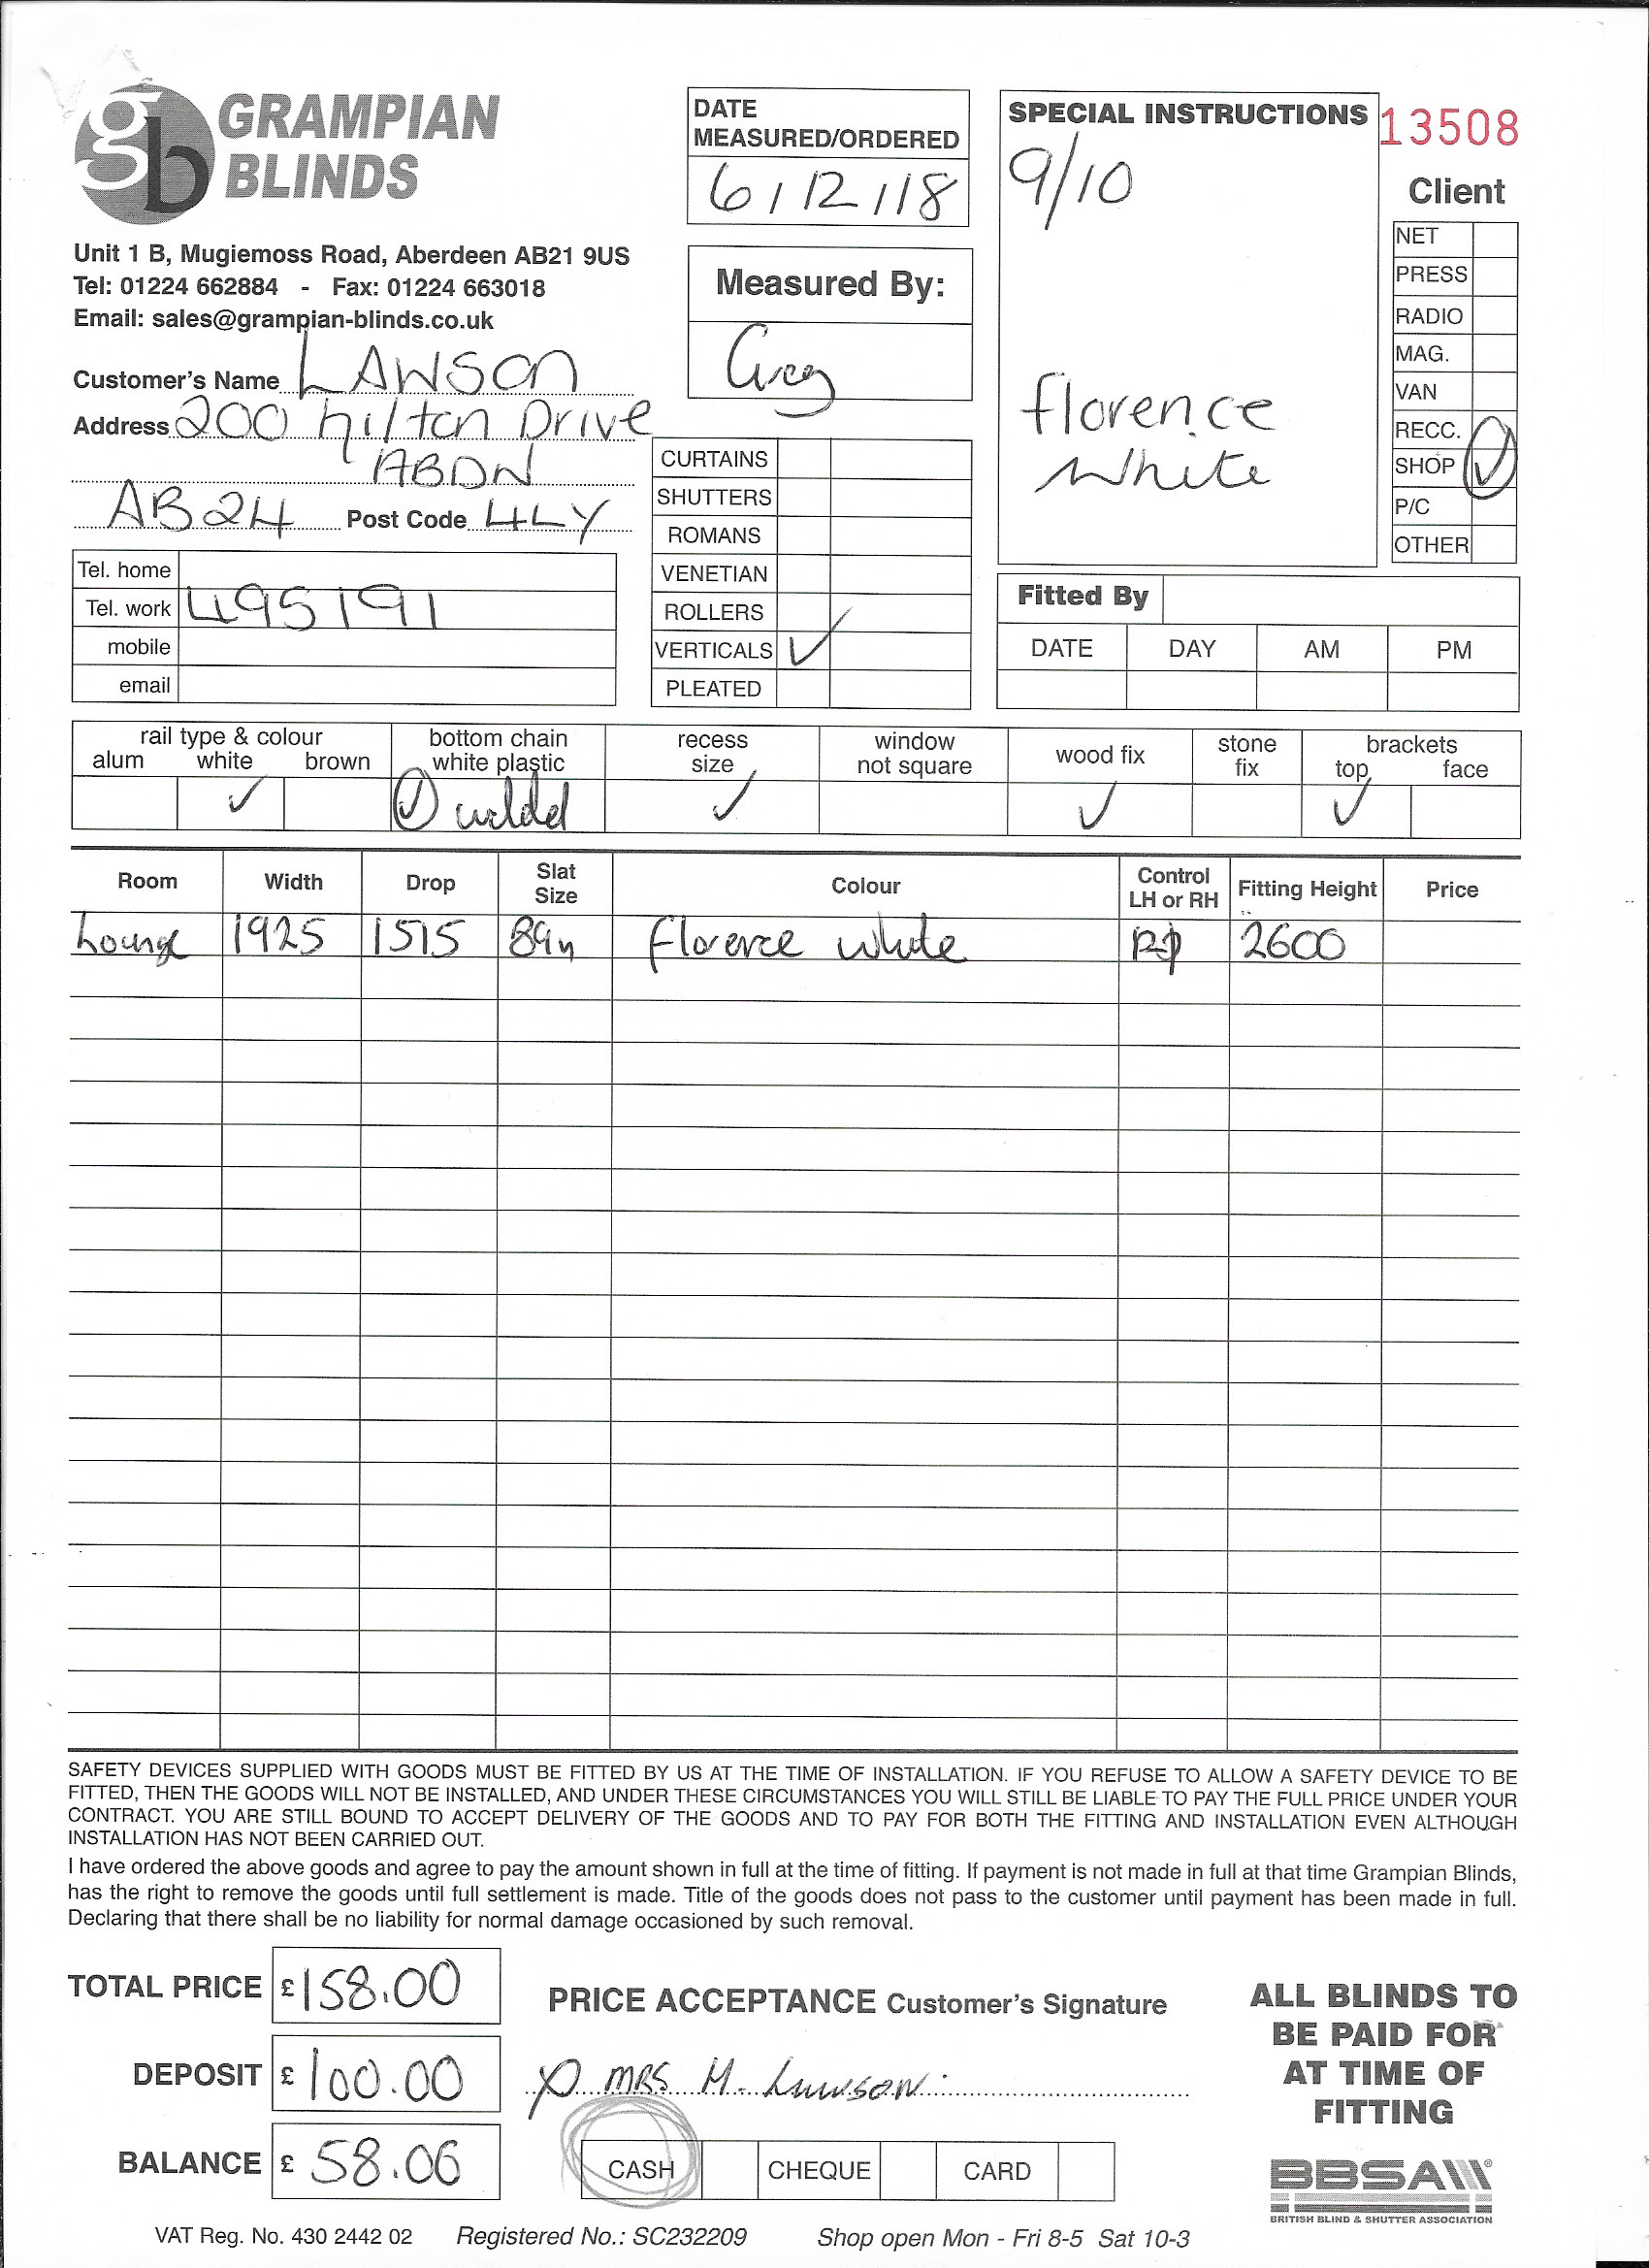 gb GRAMPIAN
BLINDS
Unit 1 B, Mugiemoss Road, Aberdeen AB21 9US
Tel: 01224 662884 - Fax: 01224 663018
Email: sales@grampian-blinds.co.uk
Customer's Name LAWSON
Address 200 hilton Drive
ABDN
AB24 Post Code 4LY
Tel. home
Tel. work 495191
mobile
email
DATE
MEASURED/ORDERED
6/12/18
Measured By:
Greg
CURTAINS
SHUTTERS
ROMANS
VENETIAN
ROLLERS
VERTICALS ✓
PLEATED
SPECIAL INSTRUCTIONS
9/10
florence
white
13508
Client
NET
PRESS
RADIO
MAG.
VAN
RECC.
SHOP ✓
P/C
OTHER
Fitted By
DATE DAY AM PM
rail type & colour bottom chain recess window wood fix stone brackets
alum white brown white plastic size not square fix top face
✓ ✓ welded ✓ ✓ ✓
Room Width Drop Slat Size Colour Control LH or RH Fitting Height Price
Lounge 1925 1515 89m florence white 2600
SAFETY DEVICES SUPPLIED WITH GOODS MUST BE FITTED BY US AT THE TIME OF INSTALLATION. IF YOU REFUSE TO ALLOW A SAFETY DEVICE TO BE
FITTED, THEN THE GOODS WILL NOT BE INSTALLED, AND UNDER THESE CIRCUMSTANCES YOU WILL STILL BE LIABLE TO PAY THE FULL PRICE UNDER YOUR
CONTRACT. YOU ARE STILL BOUND TO ACCEPT DELIVERY OF THE GOODS AND TO PAY FOR BOTH THE FITTING AND INSTALLATION EVEN ALTHOUGH
INSTALLATION HAS NOT BEEN CARRIED OUT.
I have ordered the above goods and agree to pay the amount shown in full at the time of fitting. If payment is not made in full at that time Grampian Blinds,
has the right to remove the goods until full settlement is made. Title of the goods does not pass to the customer until payment has been made in full.
Declaring that there shall be no liability for normal damage occasioned by such removal.
TOTAL PRICE £158.00
DEPOSIT £100.00
BALANCE £58.00
PRICE ACCEPTANCE Customer's Signature
X MRS M. Lawson
CASH CHEQUE CARD
ALL BLINDS TO
BE PAID FOR
AT TIME OF
FITTING
BBSA
BRITISH BLIND & SHUTTER ASSOCIATION
VAT Reg. No. 430 2442 02 Registered No.: SC232209 Shop open Mon - Fri 8-5 Sat 10-3